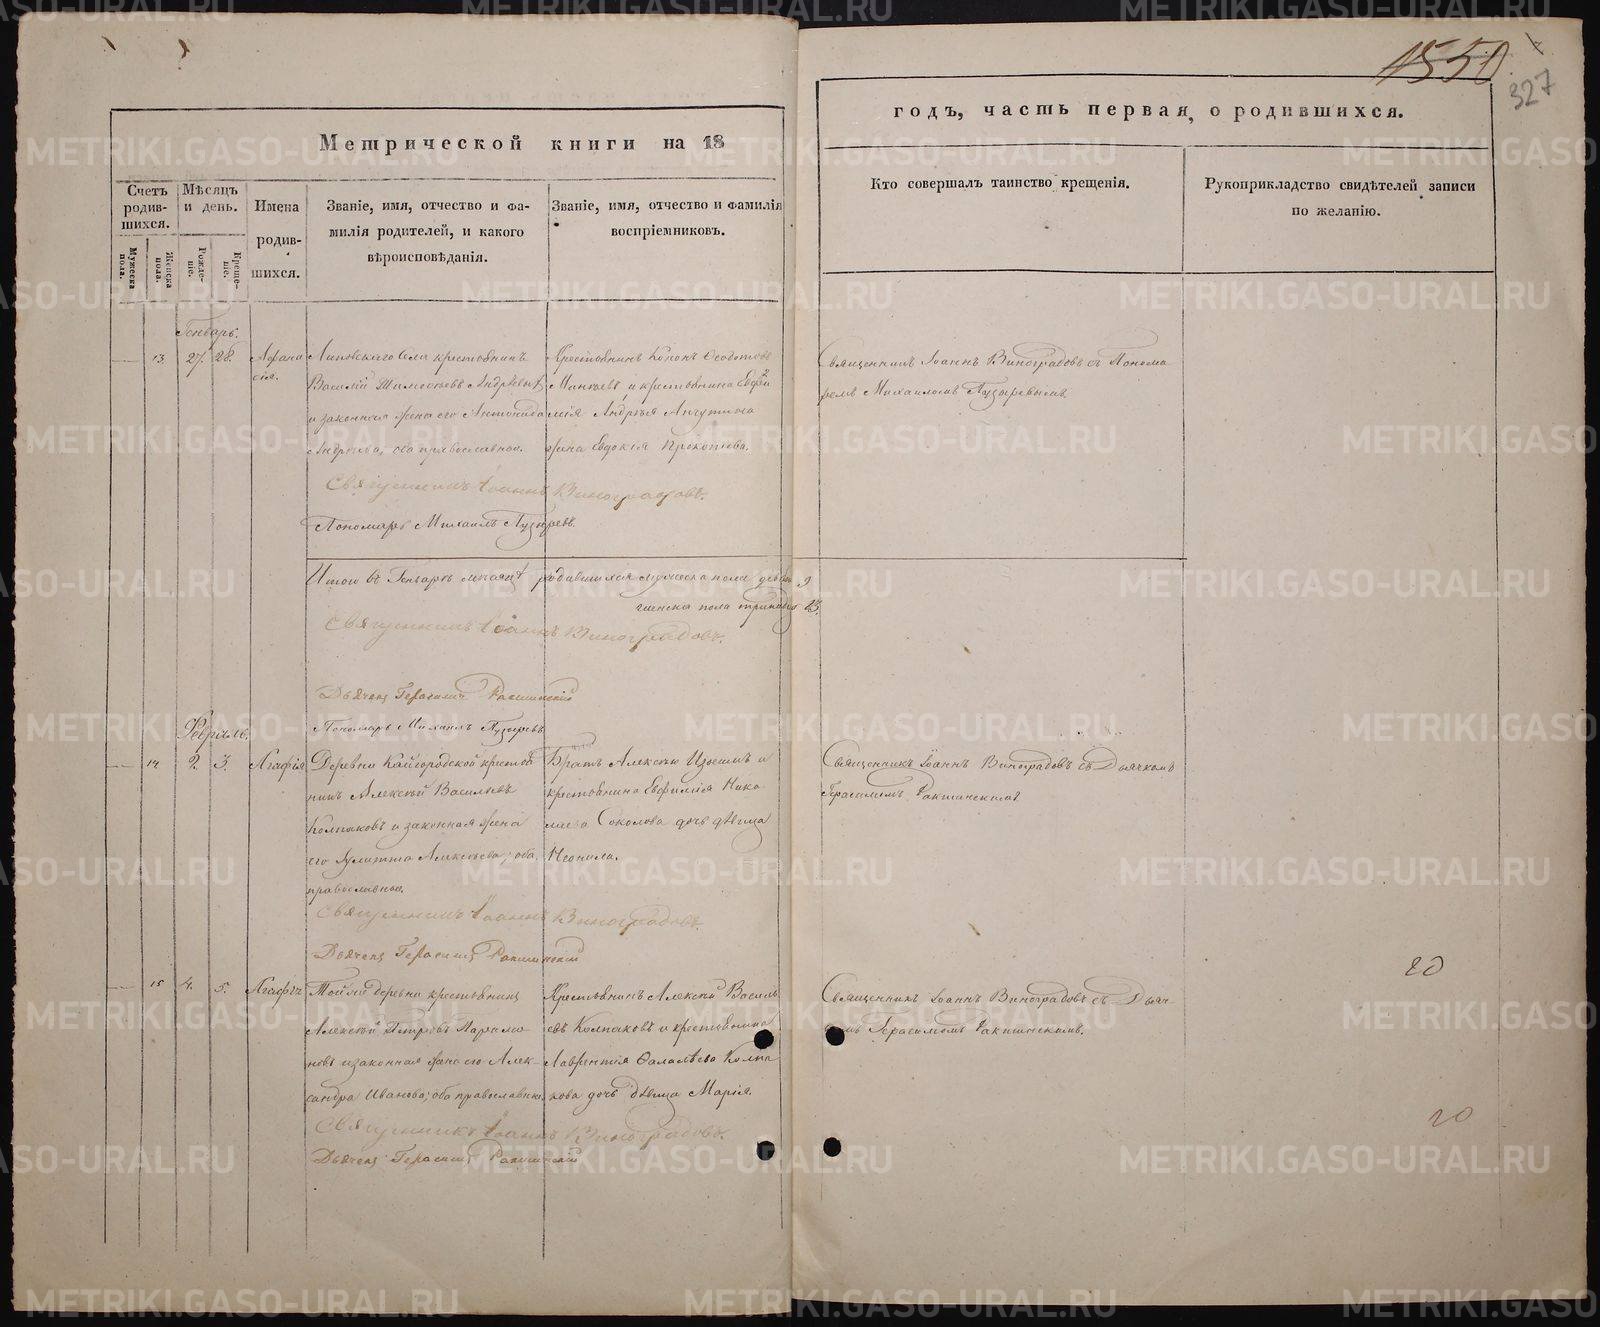 1550
327
Метрической книги на 18
годъ, часть первая, о родившихся.
Счетъ родив-шихся.
Мѣсяцъ и день.
Имена родив-шихся.
Званіе, имя, отчество и фа-
милія родителей, и какого
вѣроисповѣданія.
Званіе, имя, отчество и фамилія
воспріемниковъ.
Кто совершалъ таинство крещенія.
Рукоприкладство свидѣтелей записи
по желанію.
Мужеска пола.
Женска пола.
Рожде-ніе.
Креще-ніе.
Генварь.
13. 27. 28. Афана
сія.
Липовскаго Села крестьянинъ
Василій Тимофѣевъ
и законная жена его Антонида
Андреева, оба православные.
Крестьянинъ Кононъ Ѳедотовъ
и крестьянина
Андрея
жена Евдокія Прокопьева.
Священникъ Іоаннъ Виноградовъ съ Понома
ремъ Михаиломъ Пузыревымъ
Священникъ Іоаннъ Виноградовъ.
Пономарь Михаилъ Пузыревъ.
Итого въ Генварѣ мѣсяцѣ родившихся мужеска пола девять 9
женска пола 13.
Священникъ Іоаннъ Виноградовъ.
Дьячекъ Герасимъ Ракшинскій
Пономарь Михаилъ Пузыревъ
Февраль.
14 2. 3. Агафія
Деревни Кайгородской крестья
нинъ Алексѣй Васильевъ
Колпаковъ и законная жена
его Улитта Алексѣева, оба
православные.
Братъ Алексѣю и
крестьянина Нико
лаева Соколова дочь дѣвица
Неонила.
Священникъ Іоаннъ Виноградовъ съ Дьячкомъ
Герасимомъ Ракшинскимъ
Священникъ Іоаннъ Виноградовъ.
Дьячекъ Герасимъ Ракшинскій
15 4. 5. Агафія
Той же деревни крестьянинъ
Алексѣй Петровъ
новъ и законная жена его Алек-
сандра Иванова, оба православные.
Крестьянинъ Алексѣй Василь
евъ Колпаковъ и крестьянина
Лаврентія Колпа
кова дочь дѣвица Марія.
Священникъ Іоаннъ Виноградовъ съ Дьяч
комъ Герасимомъ Ракшинскимъ.
Священникъ Іоаннъ Виноградовъ.
Дьячекъ Герасимъ Ракшинскій
METRIKI.GASO-URAL.RU